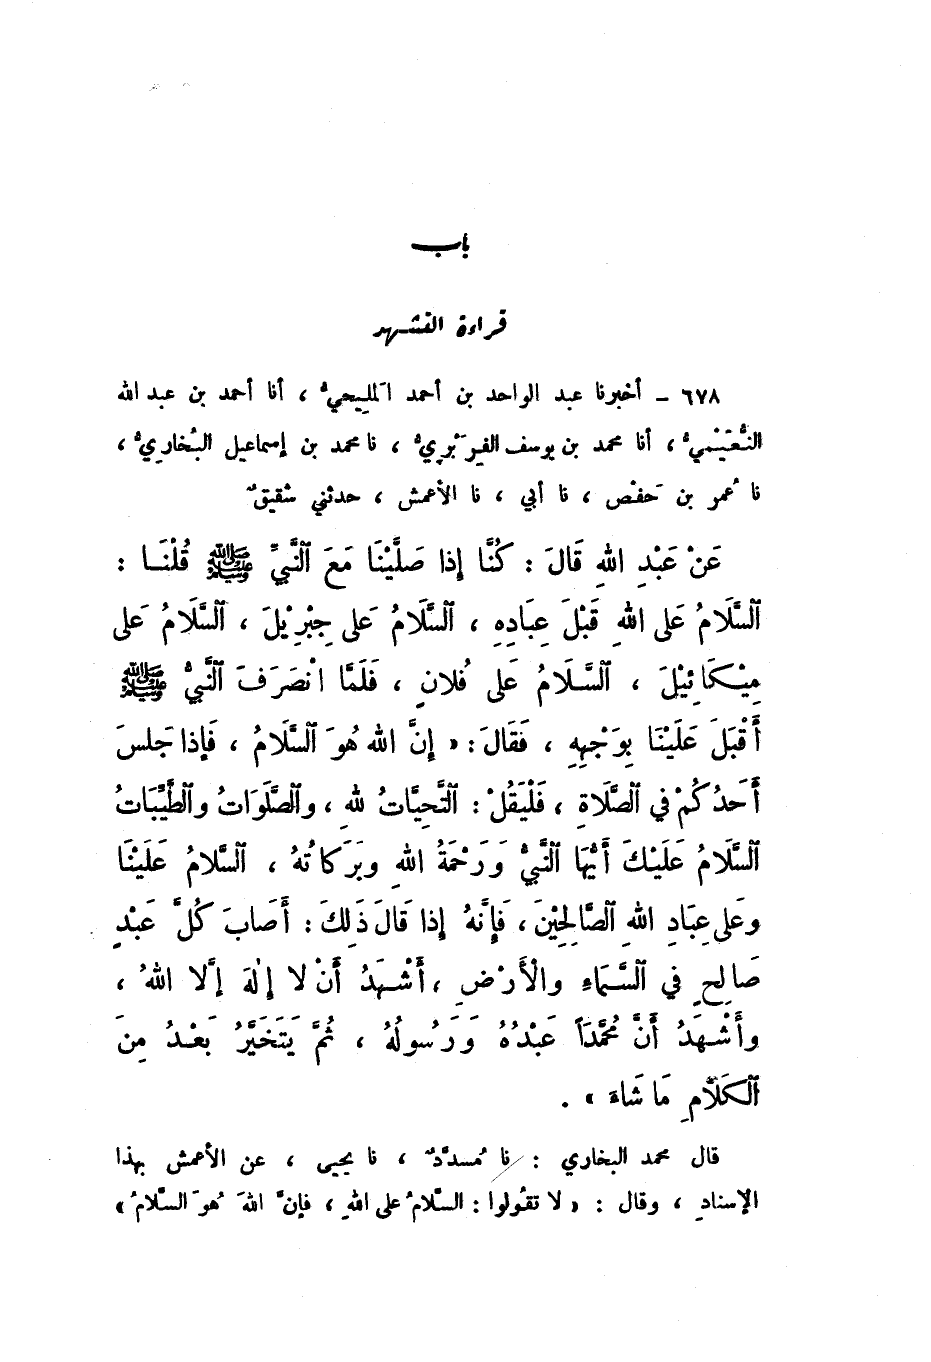 باب
قراءة التشهد
٦٧٨ – أخبرنا عبد الواحد بن أحمد المَليحيُّ ، أنا أحمد بن عبد الله
النُّعَيْميُّ ، أنا محمد بن يوسف الفِرَبْرِيُّ ، نا محمد بن إسماعيل البُخاريُّ ،
نا عُمر بن حَفْص ، نا أبي ، نا الأعمش ، حدثني شقيقٌ
عَنْ عَبْدِ اللهِ قَالَ : كُنَّا إِذا صَلَّيْنَا مَعَ النَّبيِّ ﷺ قُلْنَا :
السَّلَامُ عَلى اللهِ قَبْلَ عِبَادِهِ ، السَّلَامُ عَلى جِبْرِيْلَ ، السَّلَامُ عَلى
مِيْكَائِيْلَ ، السَّلَامُ عَلى فُلانٍ ، فَلَمَّا انْصَرَفَ النَّبيُّ ﷺ
أَقْبَلَ عَلَيْنَا بِوَجْهِهِ ، فَقَالَ : « إِنَّ اللهَ هُوَ السَّلَامُ ، فَإِذا جَلسَ
أَحَدُكُمْ في الصَّلَاةِ ، فَلْيَقُلْ : التَّحِيَّاتُ للهِ ، والصَّلَوَاتُ والطَّيِّبَاتُ
السَّلَامُ عَلَيْكَ أَيُّهَا النَّبيُّ وَرَحْمَةُ اللهِ وبَرَكاتُهُ ، السَّلامُ عَلَيْنَا
وعَلى عِبَادِ اللهِ الصَّالِحِيْنَ ، فَإِنَّهُ إِذا قَالَ ذَلِكَ : أَصَابَ كُلَّ عَبْدٍ
صَالِحٍ في السَّمَاءِ والْأَرْضِ ، أَشْهَدُ أَنْ لا إِلٰهَ إِلَّا اللهُ ،
وأَشْهَدُ أَنَّ مُحَمَّدَاً عَبْدُهُ وَرَسُولُهُ ، ثُمَّ يَتَخَيَّرُ بَعْدُ مِنَ
الكَلَامِ مَا شَاءَ » .
قال محمد البخاري : نا مُسدَّدٌ ، نا يحيى ، عن الأعمش بهذا
الإسنادِ ، وقال : « لا تقُولوا : السَّلامُ على اللهِ ، فإنَّ اللهَ هُوَ السَّلامُ »